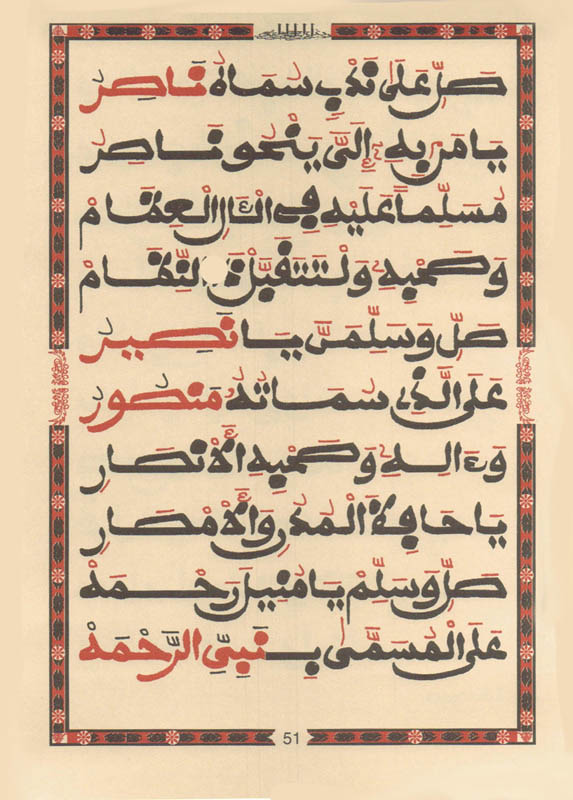 صَلِّ عَلَى نَدْبٍ سَمَاهُ نَاصِرُ
يَا مَن بِهِ إِلَىَّ يَنْحُو نَاصِرُ
مُسَلِّماً عَلَيْهِ فِي الْـَٔالِ الْعِظَامْ
وَصَحْبِهِ وَلْتَتَقَبَّلْ النِّظَامْ
صَلِّ وَسَلِّمَنَّ يَا نَصِيرُ
عَلَى الَّذِي سِمَاتُهُ مَنصُورُ
وَءَالِهِ وَصَحْبِهِ الْأَنصَارِ
يَا حَافِظَ الْمُدْنِ وَالْأَمْصَارِ
صَلِّ وَسَلِّمْ يَا مُنِيلَ رَحْمَهْ
عَلَى الْمُسَمَّى بِنَبِيِّ الرَّحْمَهْ
51